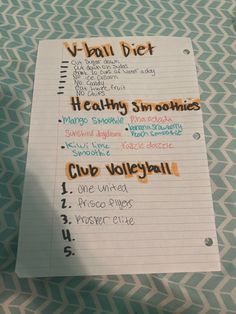 V-ball Diet
Cut sugar down
Cut down on sodas
Drink 10 cups of water a day
No ice cream
No candy
Eat more fruit
No chips
Healthy Smoothies
•Mango smoothie Pina colada
Sunshine daydream •banana strawberry
peach smoothie
•Kiwi lime razzle dazzle
Smoothie
Club Volleyball
1. One united
2. Frisco flyers
3. Prosper elite
4.
5.